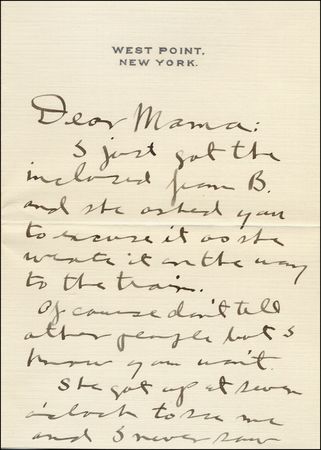 WEST POINT.
NEW YORK.
Dear Mama:
I just got the
inclosed from B.
and she asked you
to excuse it as she
wrote it on the way
to the train.
Of course don't tell
other people but I
know you won't.
She got up at seven
o'clock to see me
and I never saw